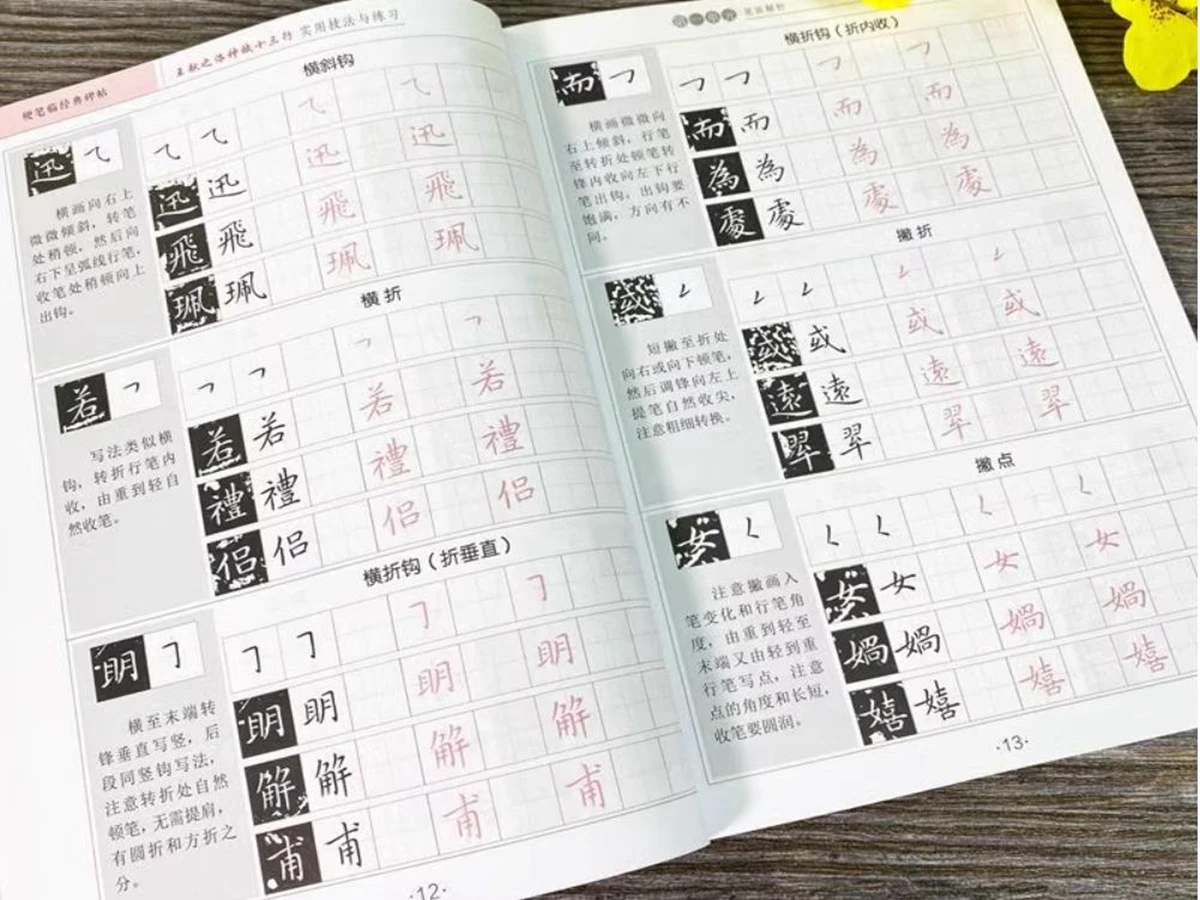 硬笔临经典碑帖
王献之洛神赋十三行 实用技法与练习
横斜钩
迅
横画向右上
微微倾斜，转笔
处稍顿，然后向
右下呈弧线行笔，
收笔处稍顿向上
出钩。
迅 迅 迅 迅
飛 飛 飛 飛
珮 珮 珮 珮
横折
若
写法类似横
钩，转折行笔内
收，由重到轻自
然收笔。
若 若 若 若
禮 禮 禮 禮
侣 侣 侣 侣
横折钩（折垂直）
明
横至末端转
锋垂直写竖，后
段同竖钩写法，
注意转折处自然
顿笔，无需提肩，
有圆折和方折之
分。
明 明 明 明
解 解 解 解
甫 甫 甫 甫
·12·
第一单元 笔画解析
横折钩（折内收）
而
横画微微向
右上倾斜，行笔
至转折处顿笔转
锋内收向左下行
笔出钩，出钩要
饱满，方向有不
同。
而 而 而 而
為 為 為 為
處 處 處 處
撇折
或
短撇至折处
向右或向下顿笔，
然后调锋向左上
提笔自然收尖，
注意粗细转换。
或 或 或 或
遠 遠 遠 遠
翠 翠 翠 翠
撇点
女
注意撇画入
笔变化和行笔角
度，由重到轻至
末端又由轻到重
行笔写点，注意
点的角度和长短，
收笔要圆润。
女 女 女 女
媧 媧 媧 媧
嬉 嬉 嬉 嬉
·13·